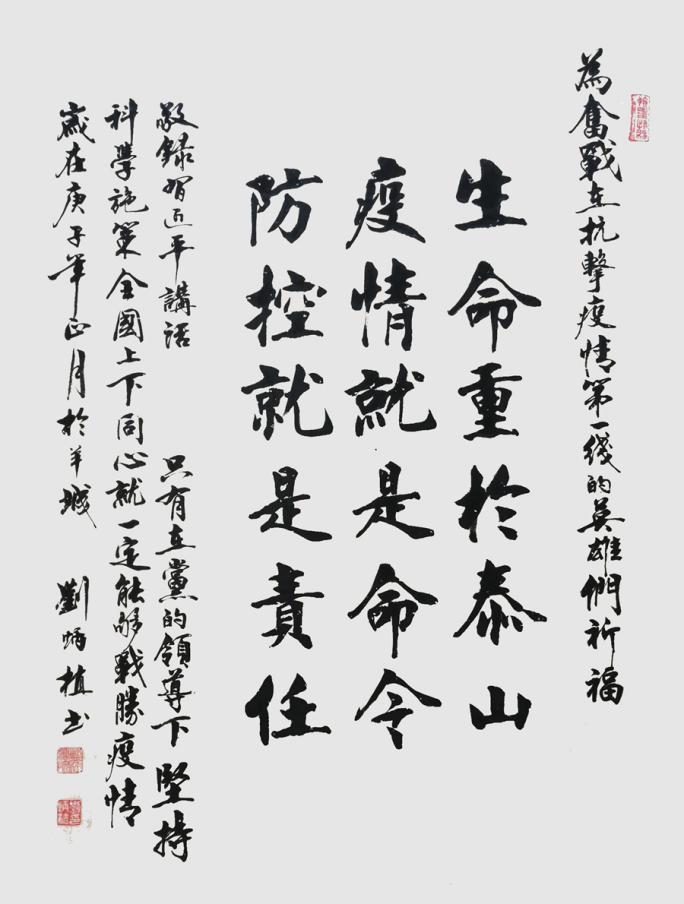 為奮戰在抗擊疫情第一綫的英雄們祈福
生命重於泰山
疫情就是命令
防控就是責任
敬録習近平講話 只有在黨的領導下堅持
科學施策全國上下同心就一定能够戰勝疫情
歲在庚子年正月於羊城 劉炳植书